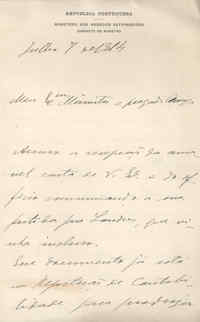 REPUBLICA PORTUGUESA
MINISTERIO DOS NEGOCIOS ESTRANGEIROS
GABINETE DO MINISTRO
Julho 7 de 1914
Meu Exmo Ministro e prezado Amigo
Accuso a recepção da
vel carta de V. E. e do of
ficio communicando a sua
partida para Londres, que vi
nha incluso.
Esse documento já está
na Repartição de Contabi
lidade para